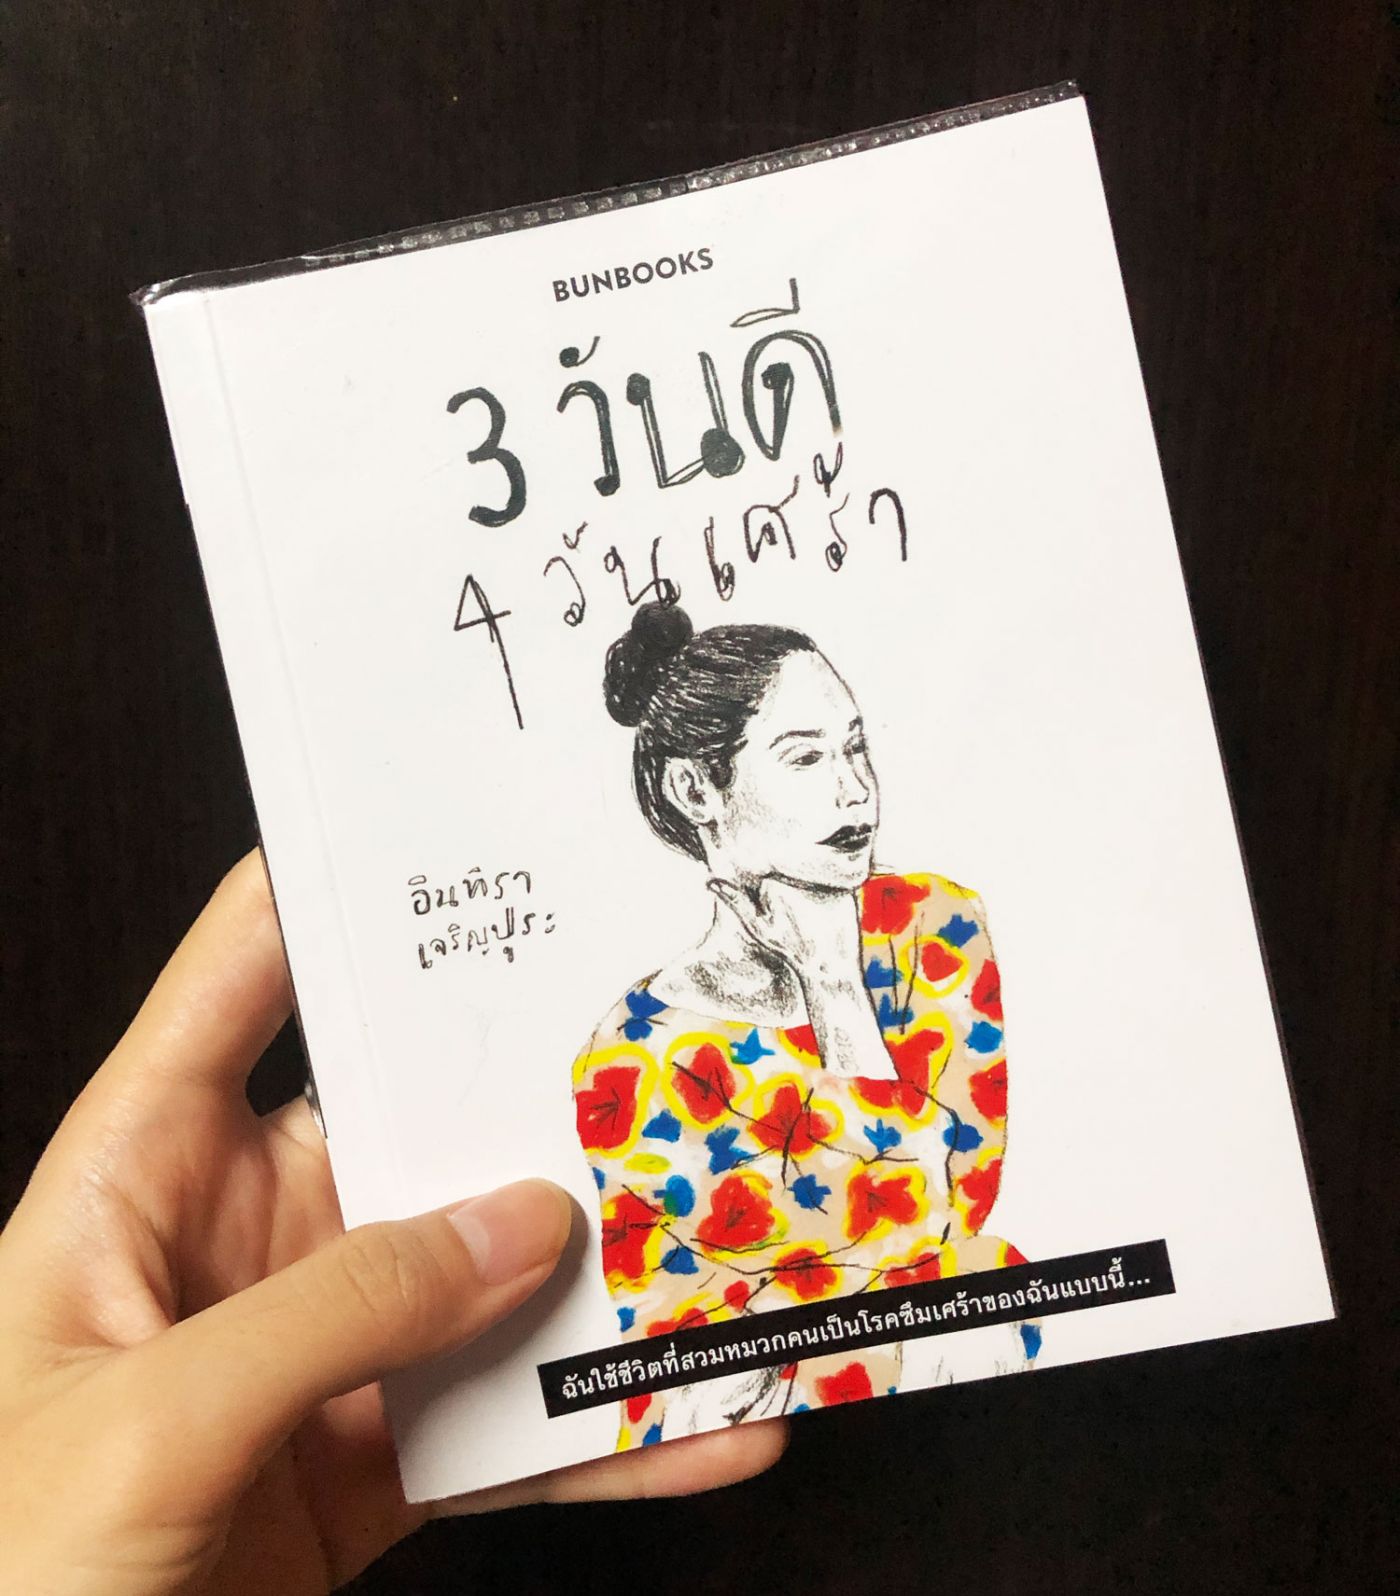 BUNBOOKS
3 วันดี
4 วันเศร้า
อินทิรา
เจริญปุระ
ฉันใช้ชีวิตที่สวมหมวกคนเป็นโรคซึมเศร้าของฉันแบบนี้...